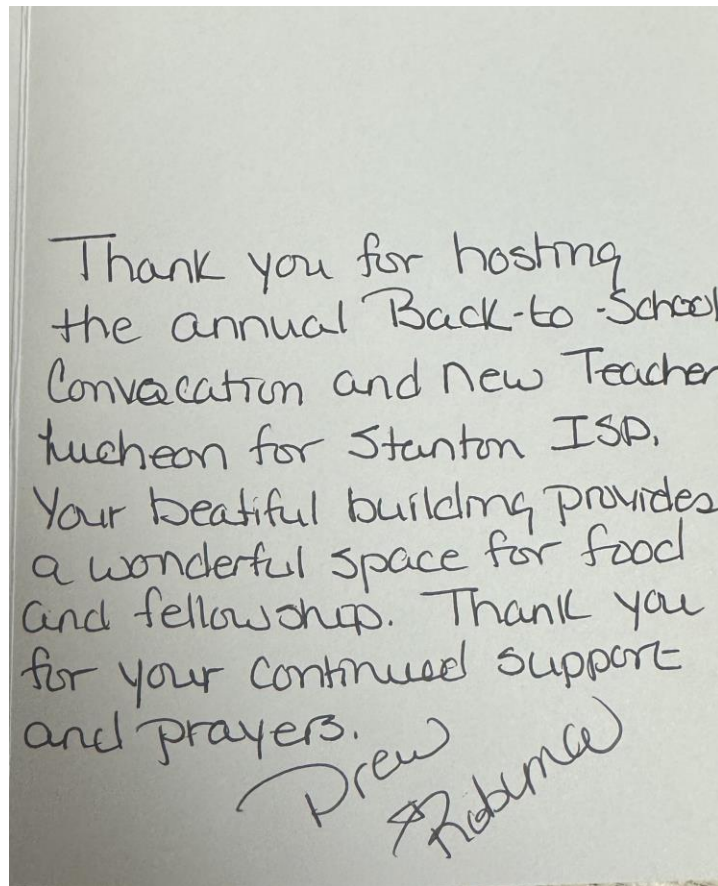 Thank you for hosting
the annual Back-to-School
Convocation and new Teacher
Lucheon for Stanton ISD.
Your beatiful building provides
a wonderful space for food
and fellowship. Thank you
for your continued support
and prayers.
Drew